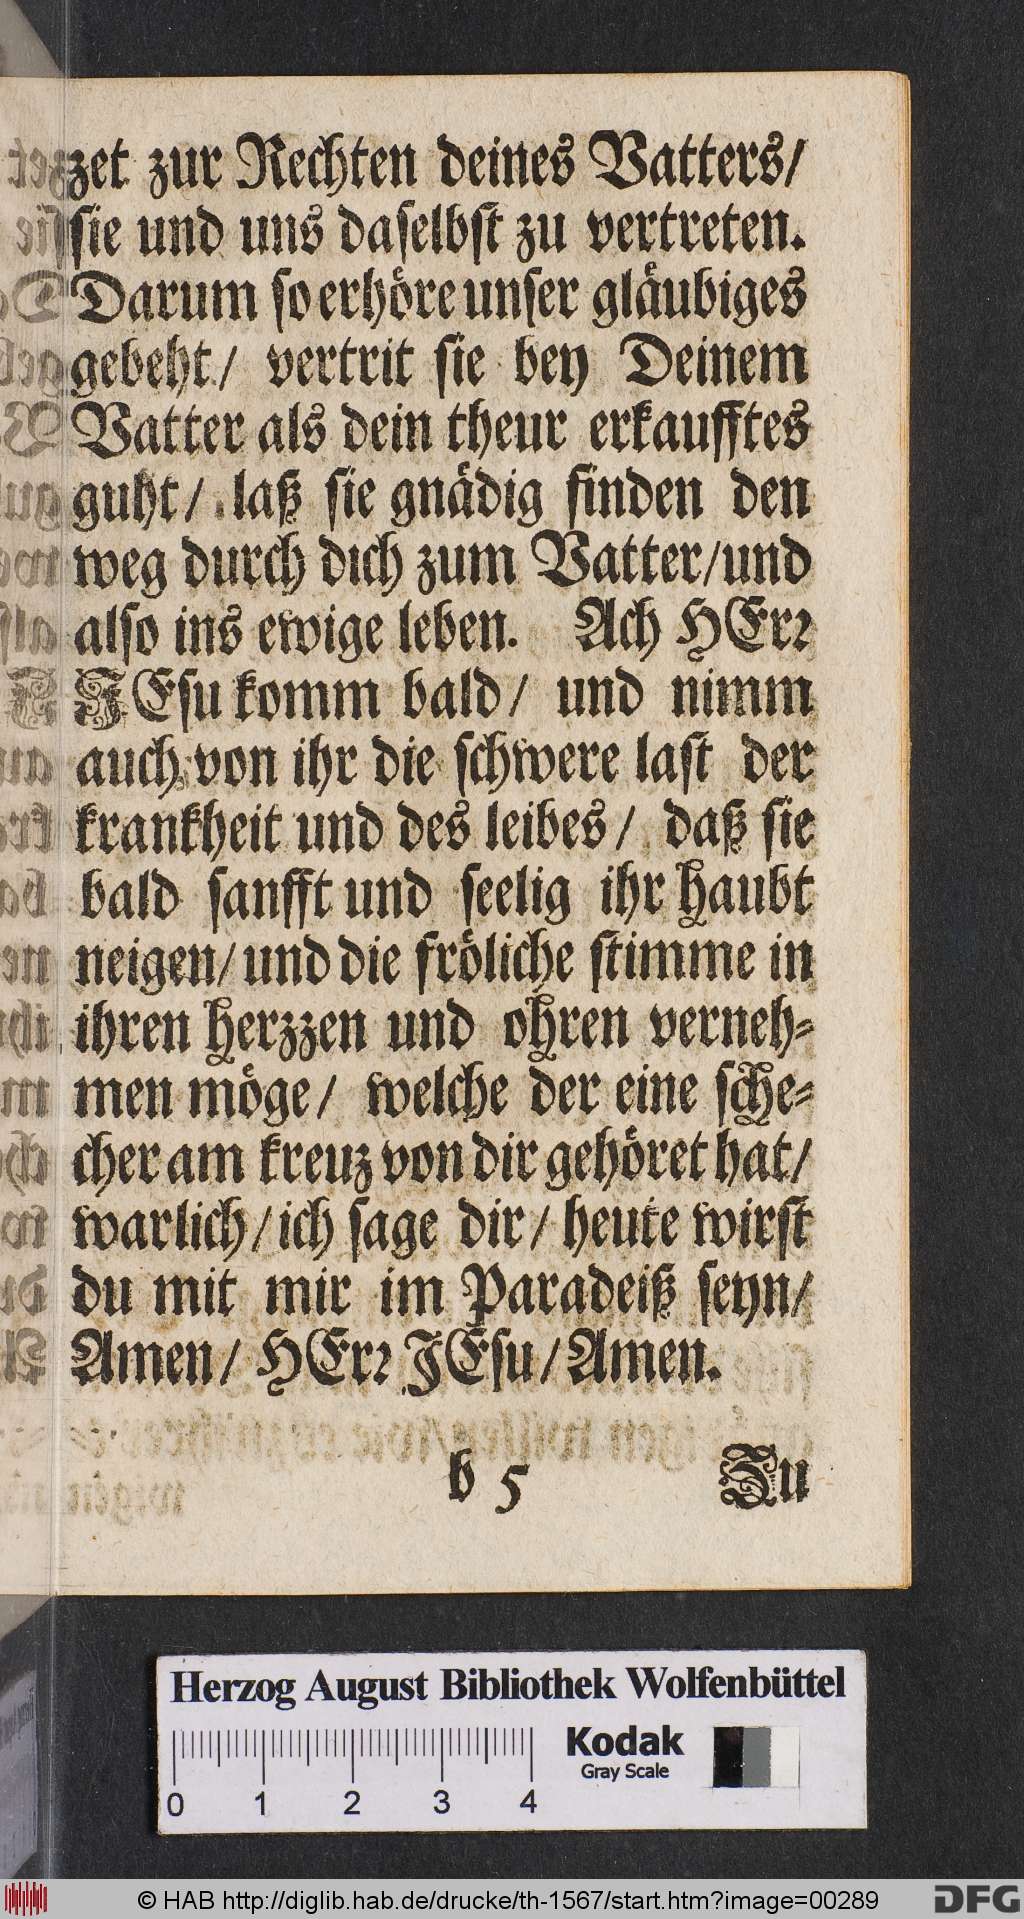 zet zur Rechten deines Vatters/
sie und uns daselbst zu vertreten.
Darum so erhöre unser gläubiges
gebeht/ vertrit sie bey Deinem
Vatter als dein theur erkaufftes
guht/ laß sie gnädig finden den
weg durch dich zum Vatter/und
also ins ewige leben. Ach HErꝛ
JEsu komm bald/ und nimm
auch von ihr die schwere last der
krankheit und des leibes/ daß sie
bald sanfft und seelig ihr haubt
neigen/und die fröliche stimme in
ihren herzzen und ohren verneh-
men möge/ welche der eine sche-
cher am kreuz von dir gehöret hat/
warlich/ich sage dir/ heute wirst
du mit mir im Paradeiß seyn/
Amen/ HErꝛ JEsu/Amen.
b 5 Zu
Herzog August Bibliothek Wolfenbüttel
Kodak
Gray Scale
0 1 2 3 4
© HAB http://diglib.hab.de/drucke/th-1567/start.htm?image=00289
DFG